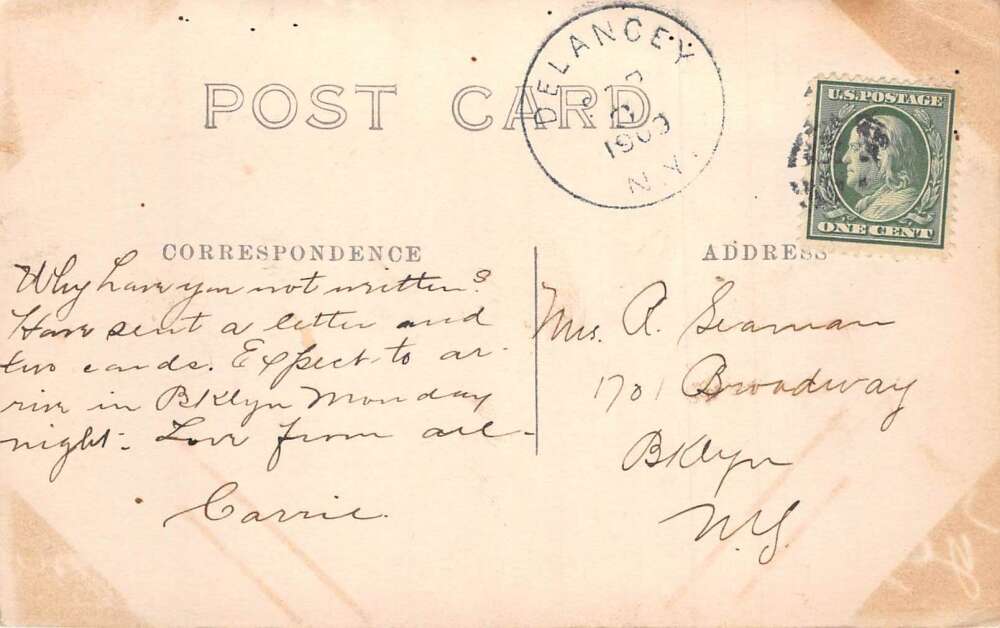 POST CARD
DELANCEY
1909
N.Y.
U.S. POSTAGE
ONE CENT
CORRESPONDENCE
Why have you not written?
Have sent a letter and
two cards. Expect to ar-
rive in BKlyn Monday
night- Love from all-
Carrie.
ADDRESS
Mrs. A. Seaman
1701 Broadway
BKlyn
N.Y.